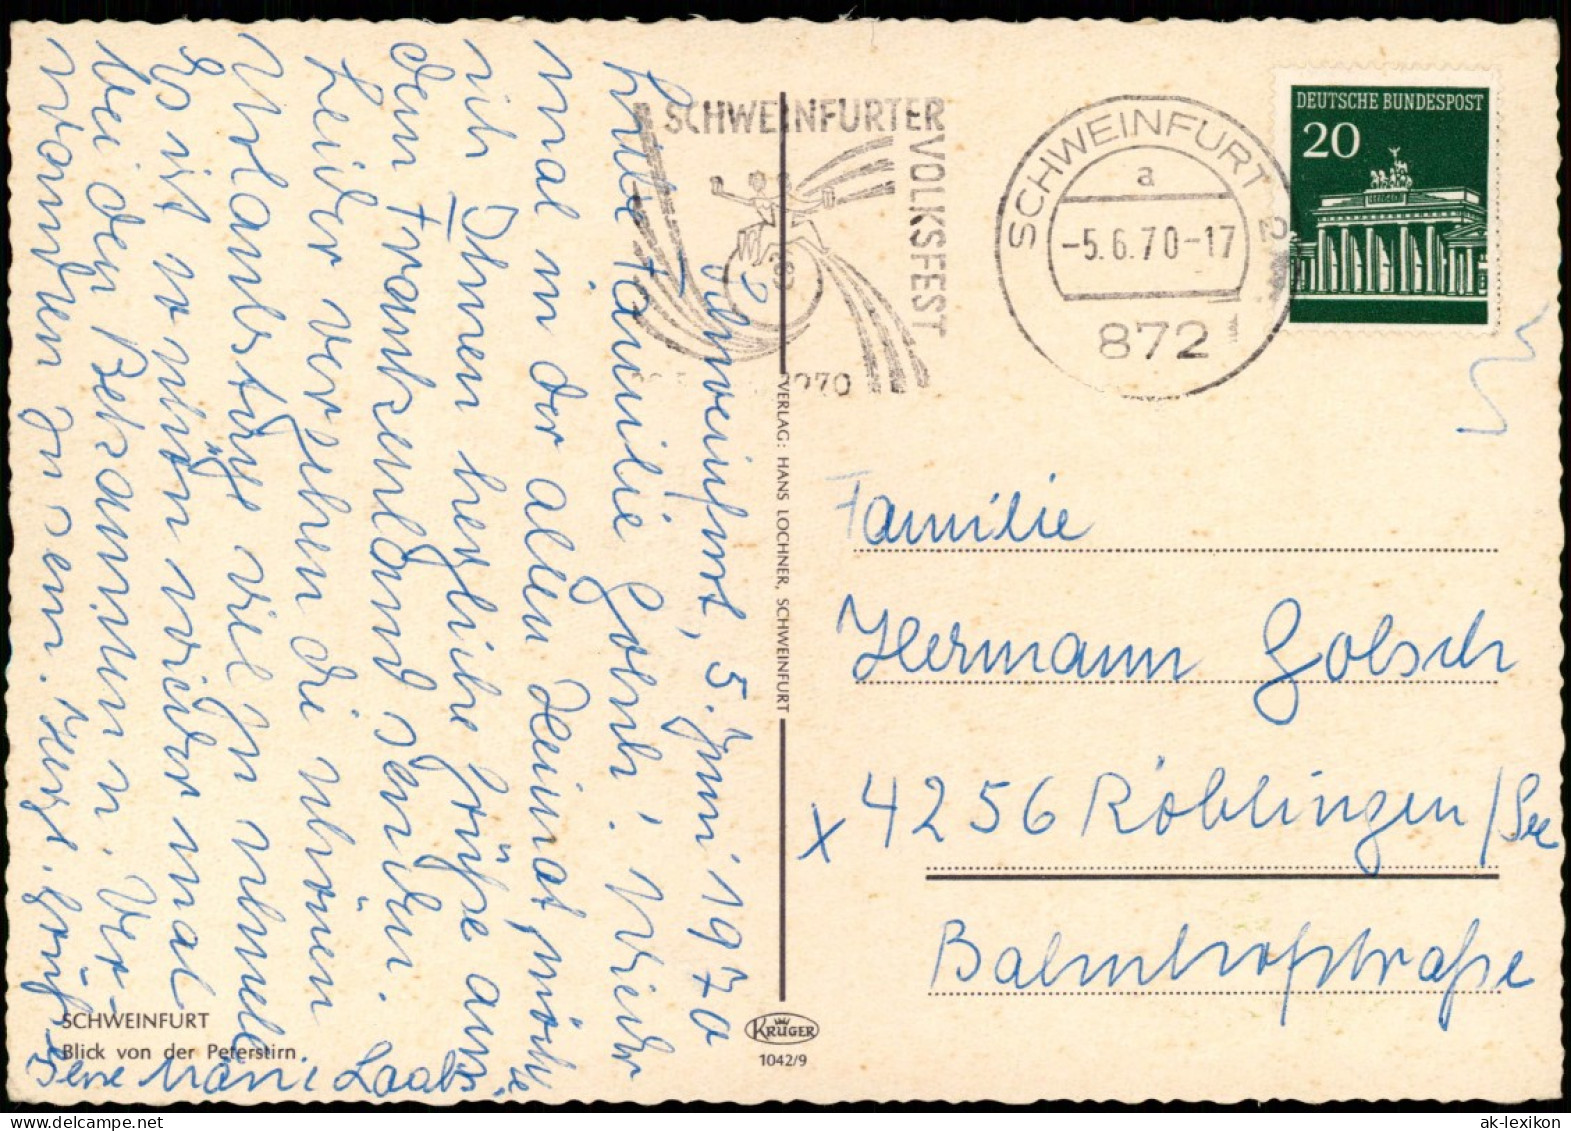 Schweinfurt, 5. Juni 1970
Liebe Familie Golsch! Wieder
mal in der alten Heimat, möchte
ich Ihnen herzliche Grüße aus
dem Frankenland senden.
Leider vergehen die schönen
Urlaubstage viel zu schnell
Es ist so schön wieder mal
bei den Bekannten u. Ver-
wandten zu sein. Herzl. Grüße
Ihre Marie Laabs
SCHWEINFURT
Blick von der Peterstirn
SCHWEINFURTER
VOLKSFEST
1970
VERLAG: HANS LOCHNER, SCHWEINFURT
KRÜGER
1042/9
SCHWEINFURT 2
a
-5.6.70-17
872
DEUTSCHE BUNDESPOST
20
Familie
Hermann Golsch
x 4256 Röblingen/See
Bahnhofstraße
ak-lexikon.com